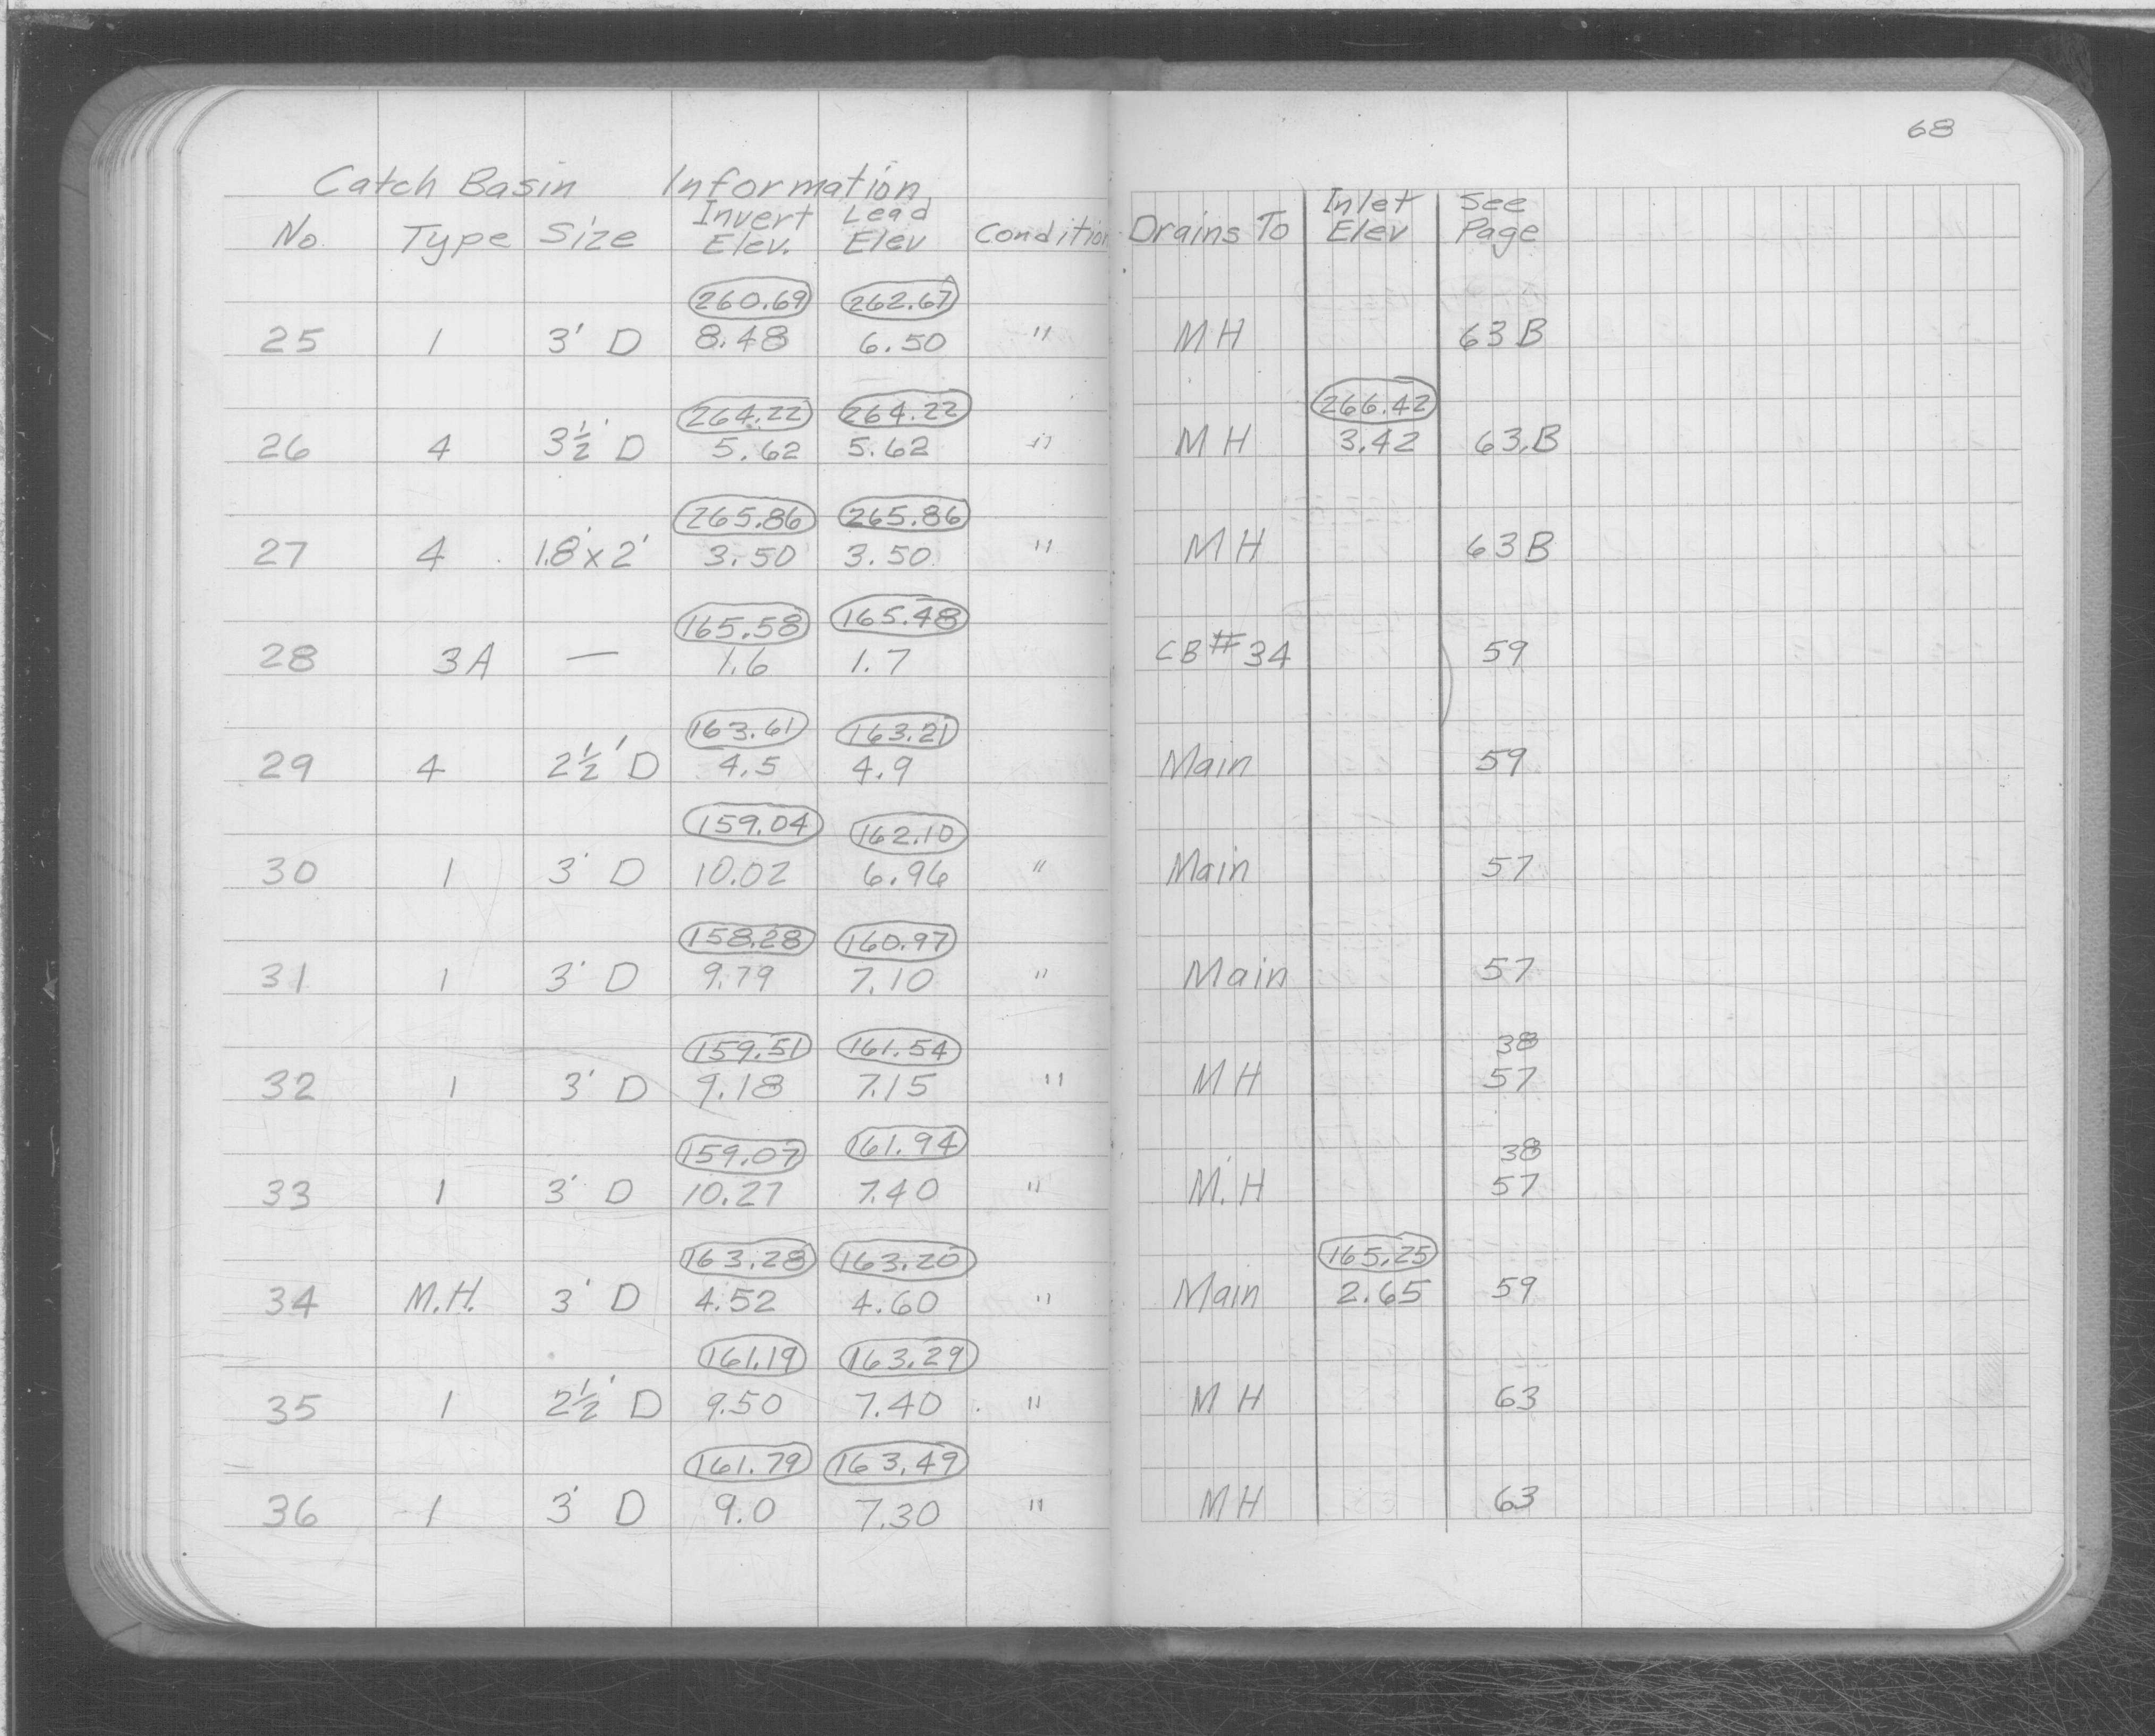 68
Catch Basin Information
No. Type Size Invert Elev. Lead Elev Condition Drains To Inlet Elev See Page
260.69 262.67
25 1 3' D 8.48 6.50 " MH 63B
264.22 264.22 266.42
26 4 3½' D 5.62 5.62 " MH 3.42 63B
265.86 265.86
27 4 1.8' x 2' 3.50 3.50 " MH 63B
165.58 165.48
28 3A — 1.6 1.7 CB #34 59
163.61 163.21
29 4 2½' D 4.5 4.9 Main 59
159.04 162.10
30 1 3' D 10.02 6.96 " Main 57
158.28 160.97
31 1 3' D 9.79 7.10 " Main 57
159.51 161.54 38
32 1 3' D 9.18 7.15 " MH 57
159.07 161.94 38
33 1 3' D 10.27 7.40 " M.H 57
163.28 163.20 165.25
34 M.H. 3' D 4.52 4.60 " Main 2.65 59
161.19 163.29
35 1 2½' D 9.50 7.40 " MH 63
161.79 163.49
36 1 3' D 9.0 7.30 " MH 63